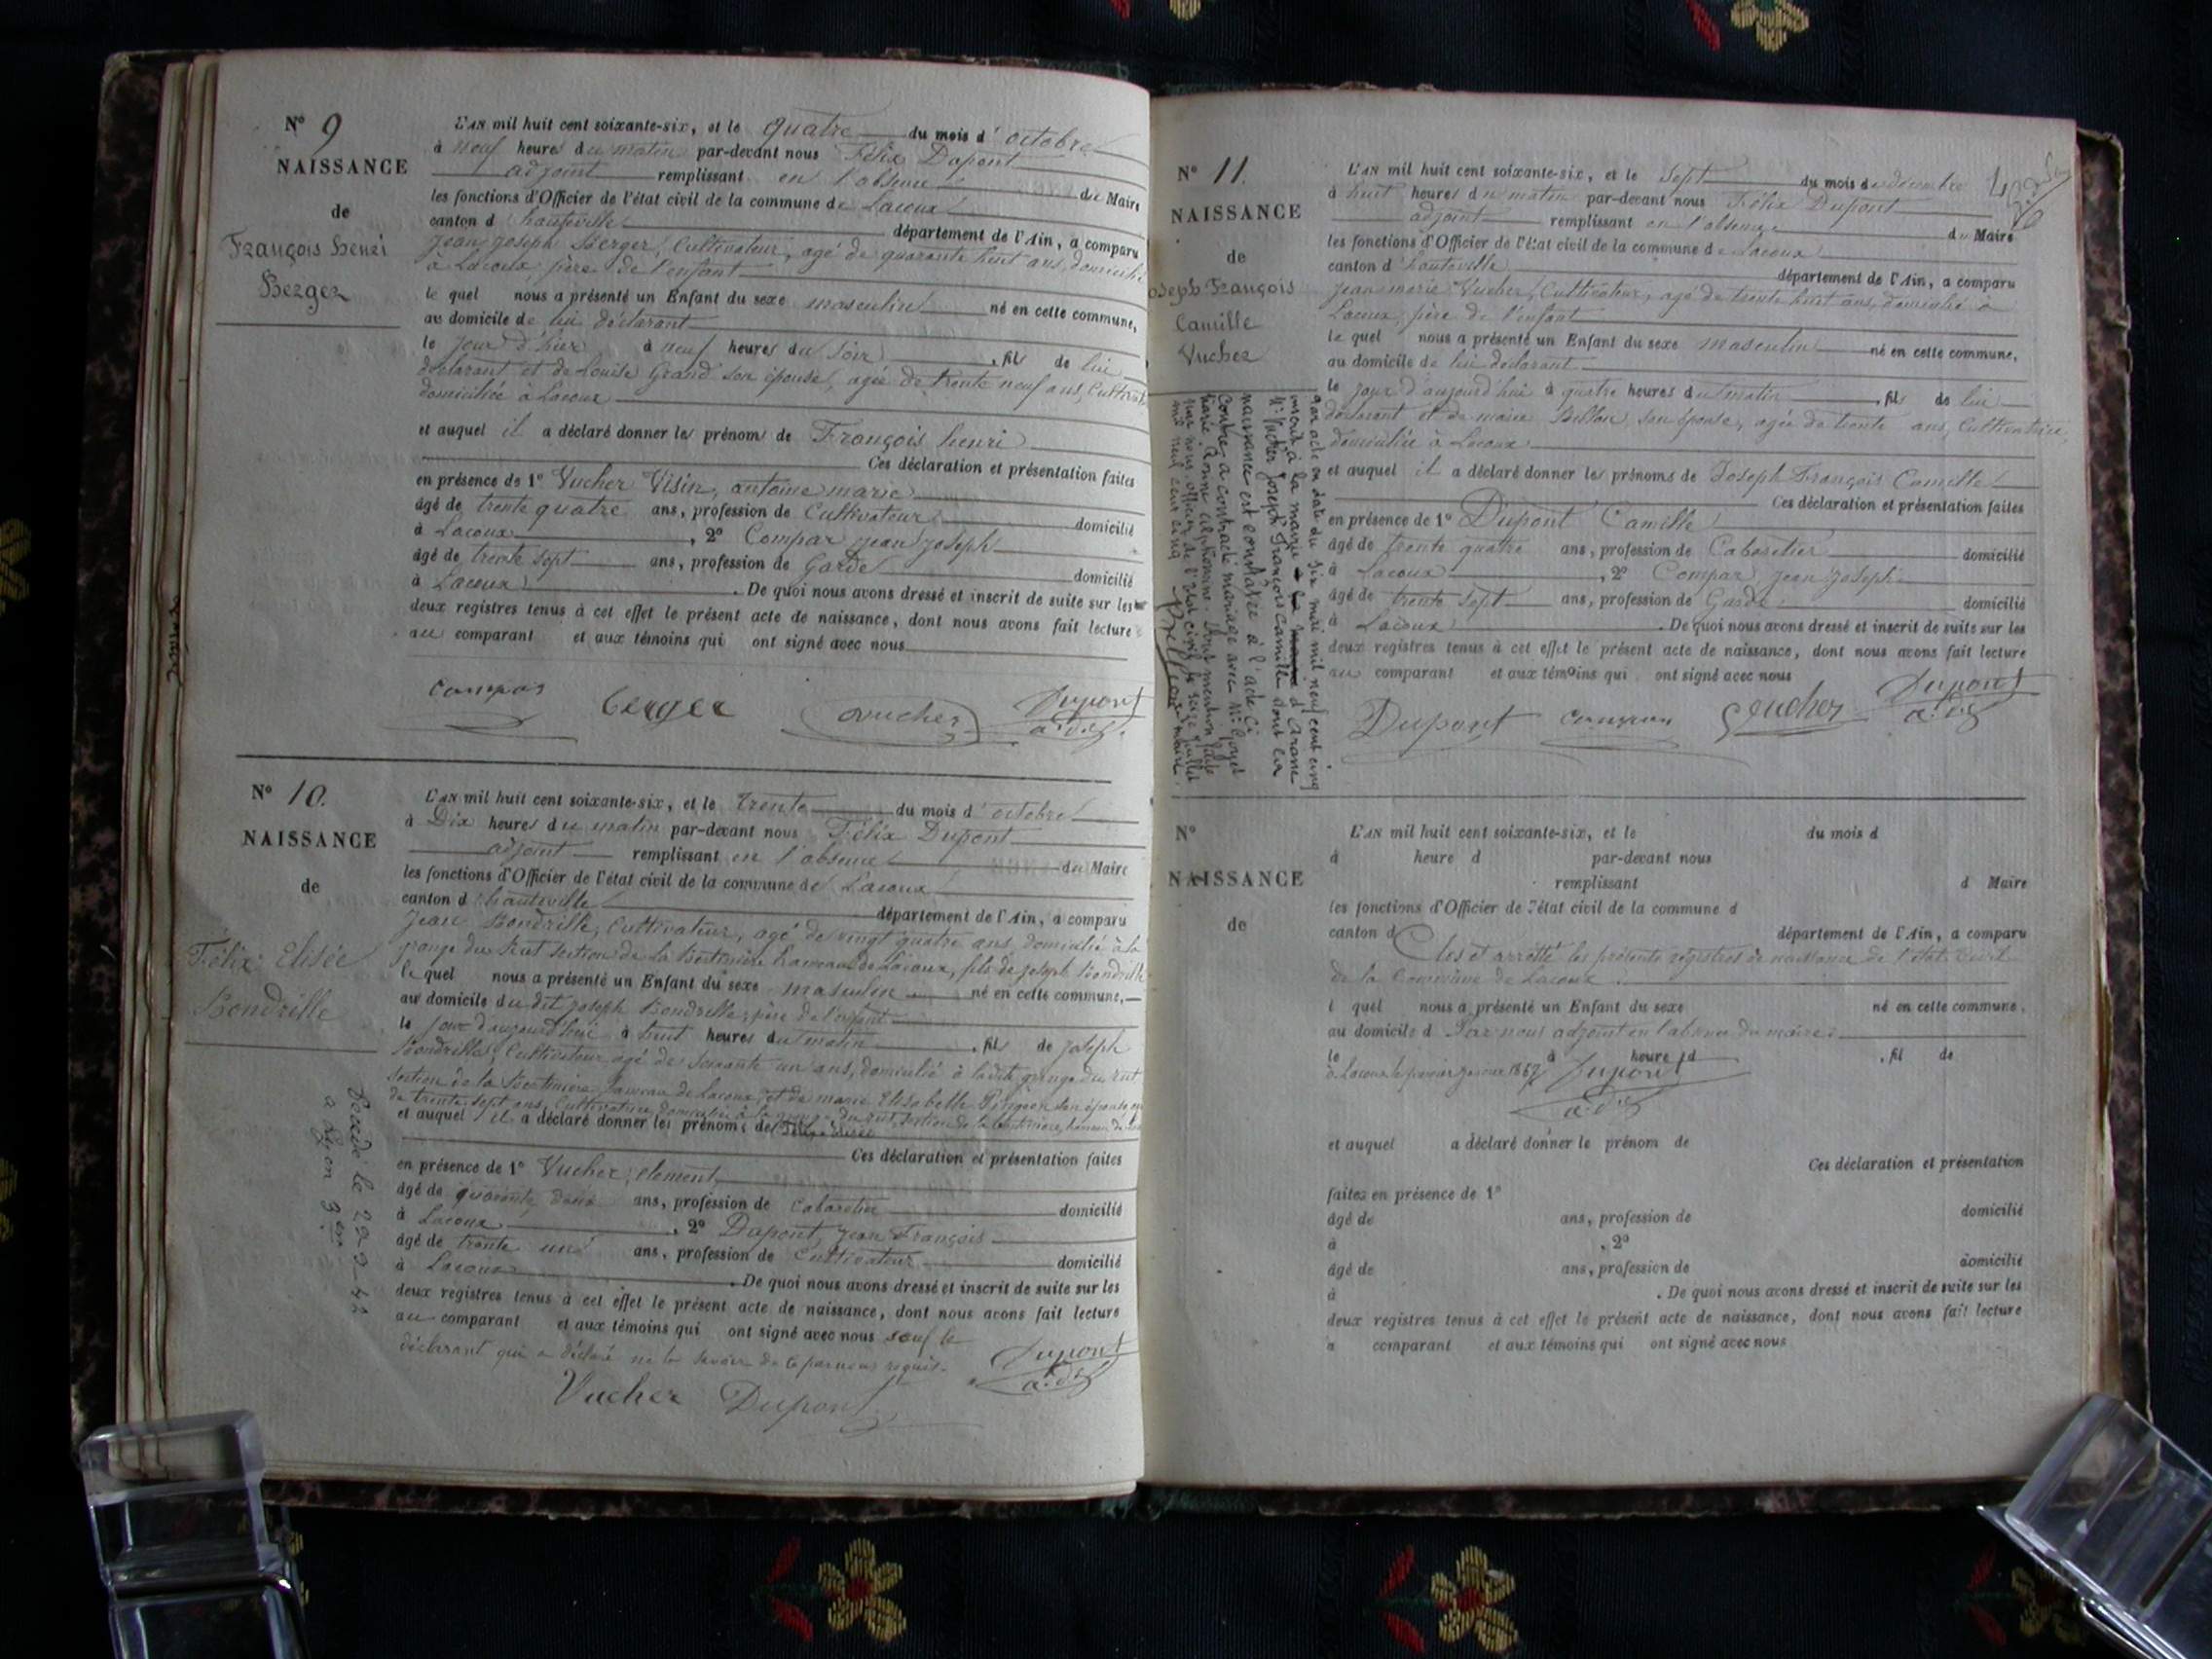 N° 9
NAISSANCE
de
François henri
Berger
L'AN mil huit cent soixante-six, et le quatre du mois d' octobre
à neuf heures du matin par-devant nous Félix Dupont
adjoint remplissant en l'absence du Maire
les fonctions d'Officier de l'état civil de la commune de Lacoux
canton d' hauteville département de l'Ain, a comparu
Jean Joseph Berger, Cultivateur, agé de quarante huit ans, domicilié
à Lacoux, père de l'enfant
le quel nous a présenté un Enfant du sexe masculin né en cette commune,
au domicile de lui déclarant
le jour d'hier à neuf heures du soir, fils de lui
déclarant et de Louise Grand son épouse, agée de trente neuf ans, Cultivat
domiciliée à Lacoux
et auquel il a déclaré donner les prénoms de François henri
Ces déclaration et présentation faites
en présence de 1° Vucher Visin, antoine marie
âgé de trente quatre ans, profession de Cultivateur domicilié
à Lacoux, 2° Compar Jean Joseph
âgé de trente sept ans, profession de Garde domicilié
à Lacoux. De quoi nous avons dressé et inscrit de suite sur les
deux registres tenus à cet effet le présent acte de naissance, dont nous avons fait lecture
au comparant et aux témoins qui ont signé avec nous
compar berger avucher Dupont
adj.
N° 10.
NAISSANCE
de
Félix Elisée
Bondrille
Décédé le 22-2-42
a Lyon 3eme
L'AN mil huit cent soixante-six, et le trente du mois d' octobre
à Dix heures du matin par-devant nous Félix Dupont
adjoint remplissant en l'absence du Maire
les fonctions d'Officier de l'état civil de la commune de Lacoux
canton d' hauteville département de l'Ain, a comparu
Jean Bondrille, Cultivateur, agé de vingt quatre ans, domicilié à la
grange du section de la hameau de Lacoux, fils de Joseph Bondrille
le quel nous a présenté un Enfant du sexe masculin né en cette commune,
au domicile du dit Joseph Bondrille, père de l'enfant
le jour d'aujourd'hui à huit heures du matin, fils de Joseph
Bondrille, Cultivateur agé de soixante un ans, domicilié à la dite grange du
section de la hameau de Lacoux, et de marie Elisabelle son épouse
de trente sept ans, Cultivatrice, domiciliée à la grange du section de la hameau de
et auquel il a déclaré donner les prénoms de Félix Elisée
Ces déclaration et présentation faites
en présence de 1° Vucher, clement,
âgé de quarante deux ans, profession de Cabaretier domicilié
à Lacoux, 2° Dupont, Jean François
âgé de trente un ans, profession de Cultivateur domicilié
à Lacoux. De quoi nous avons dressé et inscrit de suite sur les
deux registres tenus à cet effet le présent acte de naissance, dont nous avons fait lecture
au comparant et aux témoins qui ont signé avec nous sauf le
déclarant qui a déclaré ne le savoir de ce par nous requis.
Vucher Dupont Dupont
adj.
N° 11.
NAISSANCE
de
oseph François
Camille
Vucher
par acte en date du six mai mil neuf cent cinq
inscrit à la mairie d'Arane
Mr Vucher Joseph François Camille dont la
naissance est constatée à l'acte ci
contre, a contracté mariage avec Mlle Goyet
Marie mention faite
par nous officier de l'état civil le seize juillet
mil neuf cent cinq maire.
L'AN mil huit cent soixante-six, et le Sept du mois de décembre
à huit heures du matin par-devant nous Félix Dupont
adjoint remplissant en l'absence du Maire
les fonctions d'Officier de l'état civil de la commune de Lacoux
canton d' hauteville département de l'Ain, a comparu
Jean marie Vucher, Cultivateur, agé de trente huit ans, domicilié à
Lacoux, père de l'enfant
le quel nous a présenté un Enfant du sexe masculin né en cette commune,
au domicile de lui déclarant
le jour d'aujourd'hui à quatre heures du matin, fils de lui
déclarant et de marie Billon, son épouse, agée de trente ans, Cultivatrice,
domiciliée à Lacoux
et auquel il a déclaré donner les prénoms de Joseph François Camille
Ces déclaration et présentation faites
en présence de 1° Dupont Camille
âgé de trente quatre ans, profession de Cabaretier domicilié
à Lacoux, 2° Compar, Jean Joseph
âgé de trente sept ans, profession de Garde domicilié
à Lacoux. De quoi nous avons dressé et inscrit de suite sur les
deux registres tenus à cet effet le présent acte de naissance, dont nous avons fait lecture
au comparant et aux témoins qui ont signé avec nous
Dupont compar Vucher Dupont
adj.
N°
NAISSANCE
de
L'AN mil huit cent soixante-six, et le du mois d
à heure d par-devant nous
remplissant d Maire
les fonctions d'Officier de l'état civil de la commune d
canton d département de l'Ain, a comparu
Clos et arrêtté les présents registres de naissance de l'état Civil
de la Commune de Lacoux.
l quel nous a présenté un Enfant du sexe né en cette commune,
au domicile d Par nous adjoint en l'absence du maire
le à heure d, fil de
à Lacoux le premier janvier 1867 Dupont
adj.
et auquel a déclaré donner le prénom de
Ces déclaration et présentation
faites en présence de 1°
âgé de ans, profession de domicilié
à, 2°
âgé de ans, profession de domicilié
à. De quoi nous avons dressé et inscrit de suite sur les
deux registres tenus à cet effet le présent acte de naissance, dont nous avons fait lecture
a comparant et aux témoins qui ont signé avec nous